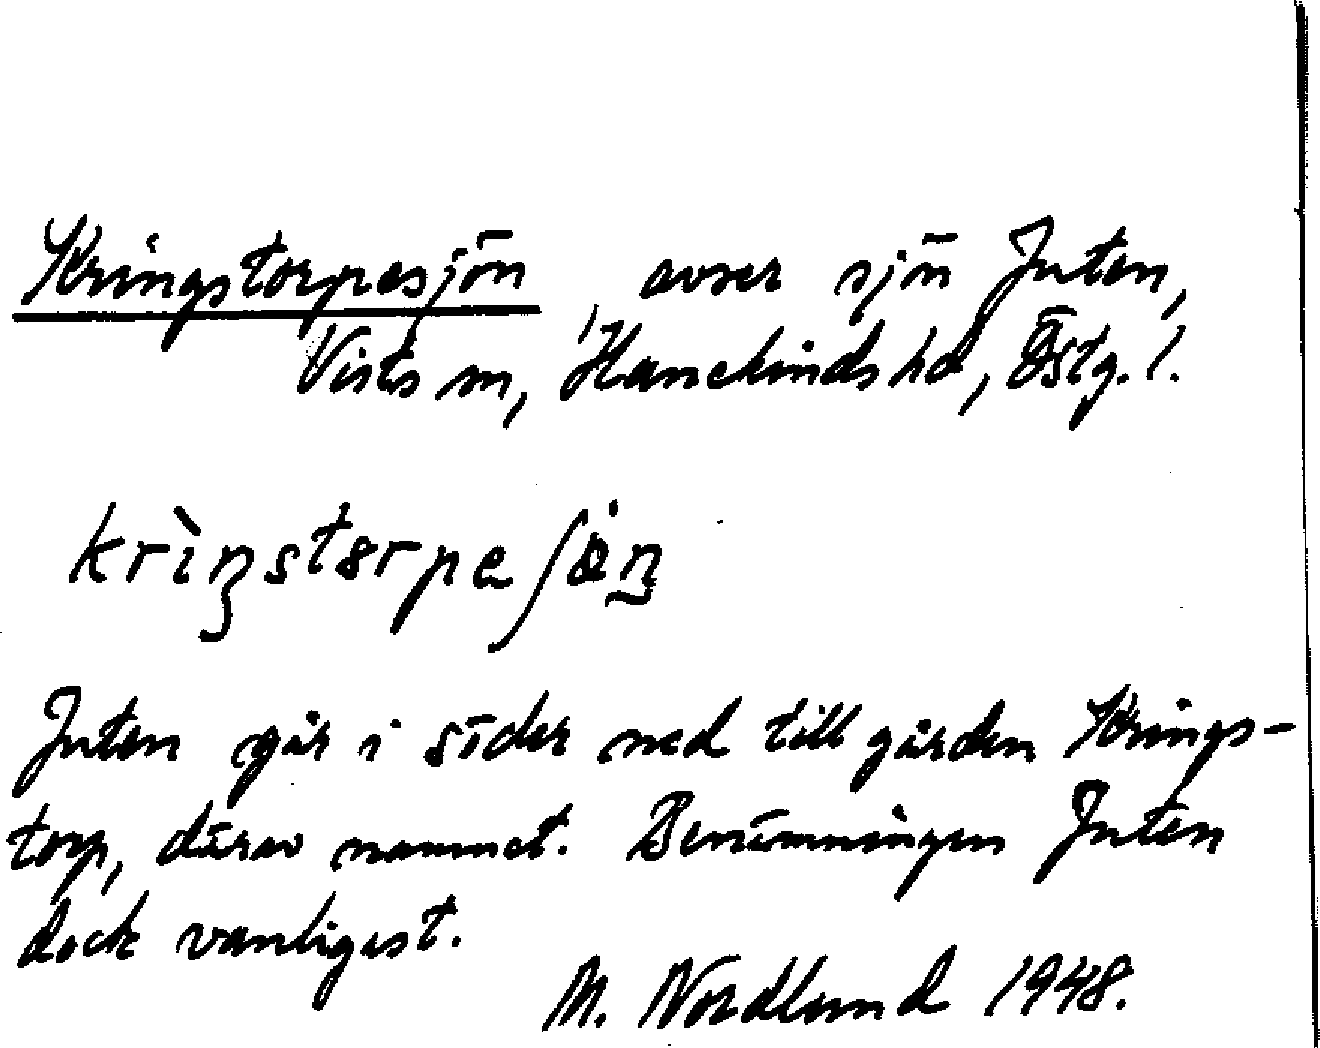 Kringstorpesjön, avser sjön Juten,
Vists sn, Hanekinds hd, Östg. l.
krìŋstɵrpeʃö̀n̠
Juten går i söder ned till gården Krings-
torp, därav namnet. Benämningen Juten
dock vanligast.
M. Nordlund 1948.